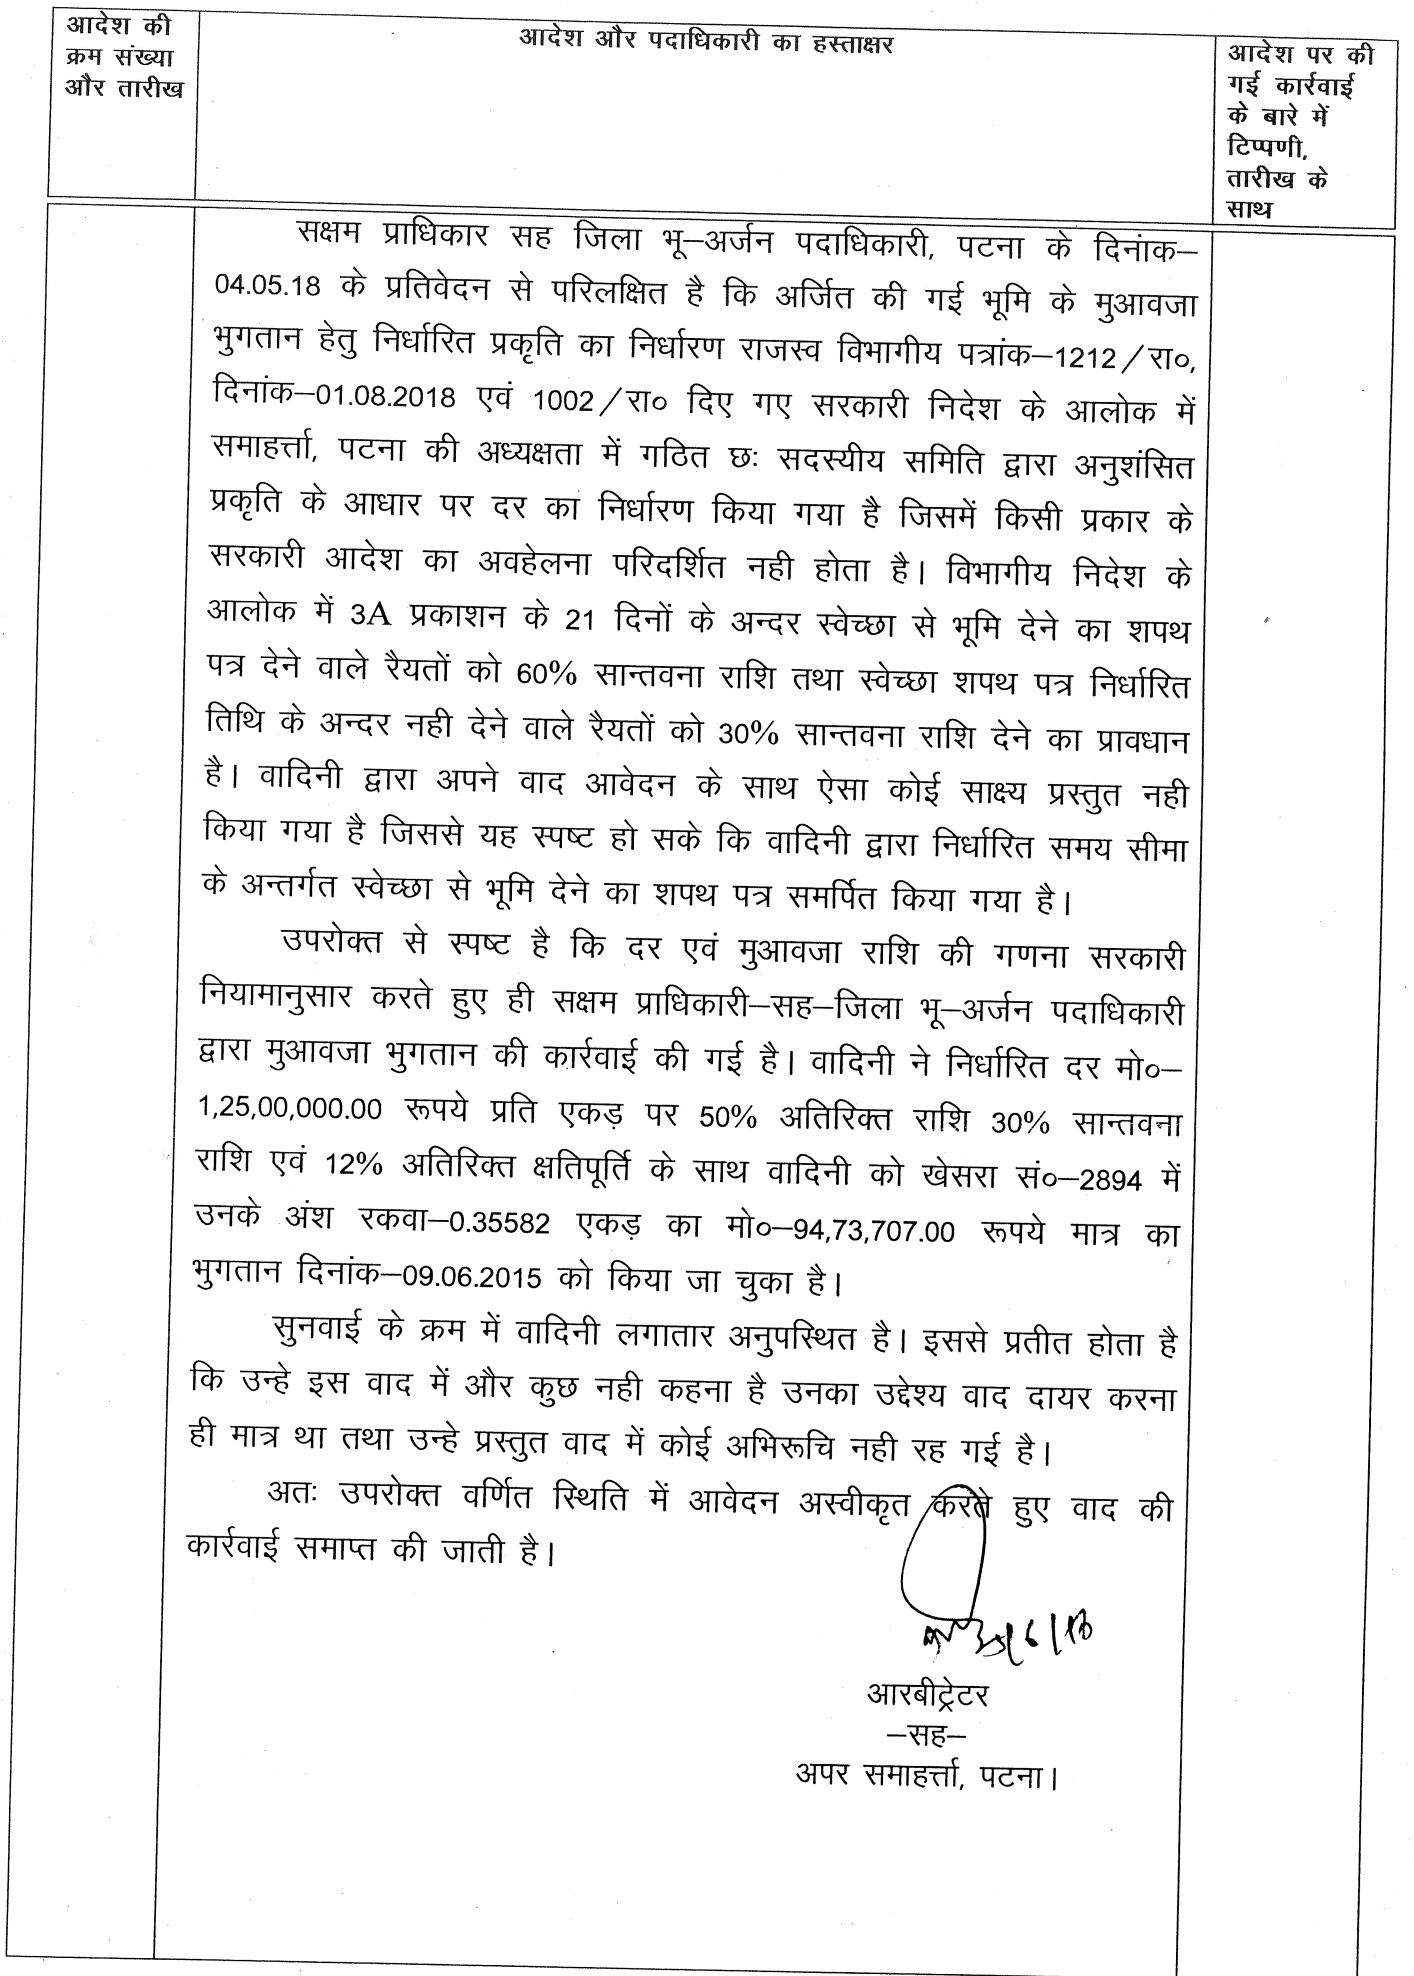 आदेश की
क्रम संख्या
और तारीख
आदेश और पदाधिकारी का हस्ताक्षर
आदेश पर की
गई कार्रवाई
के बारे में
टिप्पणी,
तारीख के
साथ
सक्षम प्राधिकार सह जिला भू–अर्जन पदाधिकारी, पटना के दिनांक–
04.05.18 के प्रतिवेदन से परिलक्षित है कि अर्जित की गई भूमि के मुआवजा
भुगतान हेतु निर्धारित प्रकृति का निर्धारण राजस्व विभागीय पत्रांक–1212/रा०,
दिनांक–01.08.2018 एवं 1002/रा० दिए गए सरकारी निदेश के आलोक में
समाहर्त्ता, पटना की अध्यक्षता में गठित छः सदस्यीय समिति द्वारा अनुशंसित
प्रकृति के आधार पर दर का निर्धारण किया गया है जिसमें किसी प्रकार के
सरकारी आदेश का अवहेलना परिदर्शित नही होता है। विभागीय निदेश के
आलोक में 3A प्रकाशन के 21 दिनों के अन्दर स्वेच्छा से भूमि देने का शपथ
पत्र देने वाले रैयतों को 60% सान्तवना राशि तथा स्वेच्छा शपथ पत्र निर्धारित
तिथि के अन्दर नही देने वाले रैयतों को 30% सान्तवना राशि देने का प्रावधान
है। वादिनी द्वारा अपने वाद आवेदन के साथ ऐसा कोई साक्ष्य प्रस्तुत नही
किया गया है जिससे यह स्पष्ट हो सके कि वादिनी द्वारा निर्धारित समय सीमा
के अन्तर्गत स्वेच्छा से भूमि देने का शपथ पत्र समर्पित किया गया है।
उपरोक्त से स्पष्ट है कि दर एवं मुआवजा राशि की गणना सरकारी
नियामानुसार करते हुए ही सक्षम प्राधिकारी–सह–जिला भू–अर्जन पदाधिकारी
द्वारा मुआवजा भुगतान की कार्रवाई की गई है। वादिनी ने निर्धारित दर मो०–
1,25,00,000.00 रूपये प्रति एकड़ पर 50% अतिरिक्त राशि 30% सान्तवना
राशि एवं 12% अतिरिक्त क्षतिपूर्ति के साथ वादिनी को खेसरा सं०–2894 में
उनके अंश रकवा–0.35582 एकड़ का मो०–94,73,707.00 रूपये मात्र का
भुगतान दिनांक–09.06.2015 को किया जा चुका है।
सुनवाई के क्रम में वादिनी लगातार अनुपस्थित है। इससे प्रतीत होता है
कि उन्हे इस वाद में और कुछ नही कहना है उनका उद्देश्य वाद दायर करना
ही मात्र था तथा उन्हे प्रस्तुत वाद में कोई अभिरूचि नही रह गई है।
अतः उपरोक्त वर्णित स्थिति में आवेदन अस्वीकृत करते हुए वाद की
कार्रवाई समाप्त की जाती है।
आरबीट्रेटर
–सह–
अपर समाहर्त्ता, पटना।